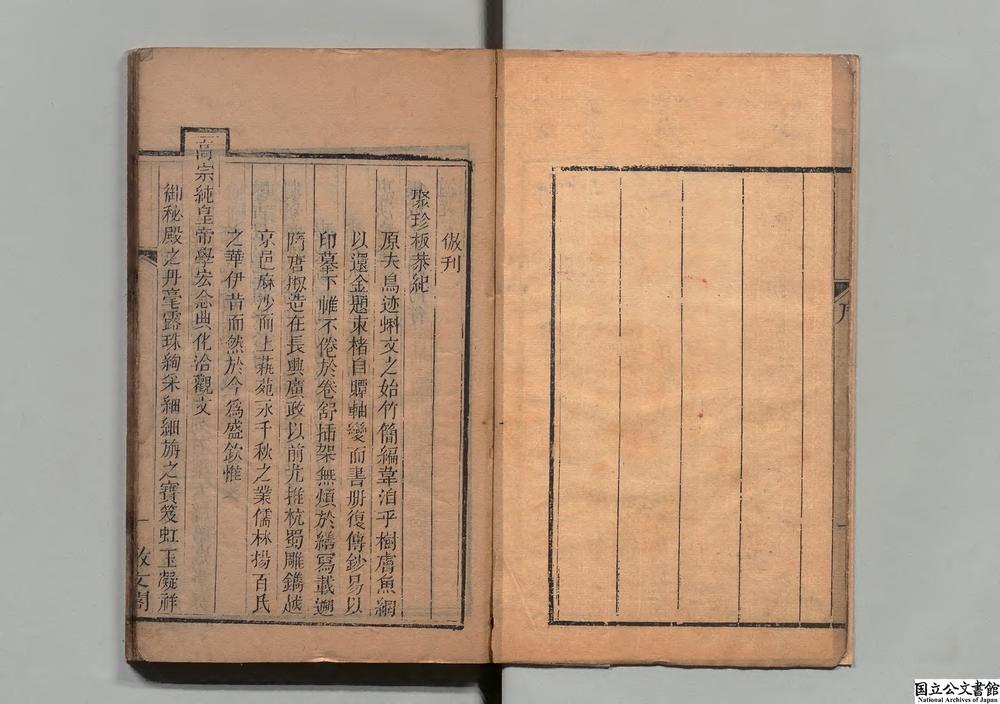 序
倣刊
聚珍板恭紀
原夫鳥迹蝌文之始竹簡編韋洎乎樹膚魚網
以還金題束楮自賾軸變而書册復傳鈔易以
印摹下帷不倦於卷舒插架無煩於繕寫載遡
隋唐椒造在長興廣政以前尤推杭蜀雕鐫越
京邑麻沙而上蓺苑永千秋之業儒林揚百氏
之華伊昔而然於今爲盛欽惟
高宗純皇帝學宏念典化洽觀文
御秘殿之丹毫露珠絢采細細旃之寶笈虹玉凝祥
一
敬文閣
国立公文書館
National Archives of Japan